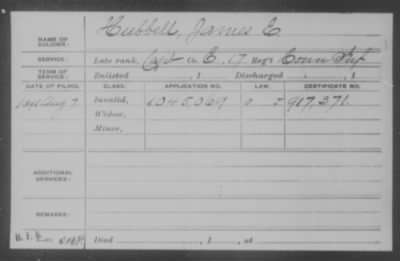 NAME OF SOLDIER: Hubbell, James E.
SERVICE: Late rank, Capt Co. E, 17 Reg't Conn Inf
TERM OF SERVICE: Enlisted , 1 Discharged , 1
DATE OF FILING. CLASS. APPLICATION NO. LAW. CERTIFICATE NO.
1891 Aug 7 Invalid, 1045,069 917,371
Widow,
Minor,
ADDITIONAL SERVICES:
REMARKS:
Died , 1 , at